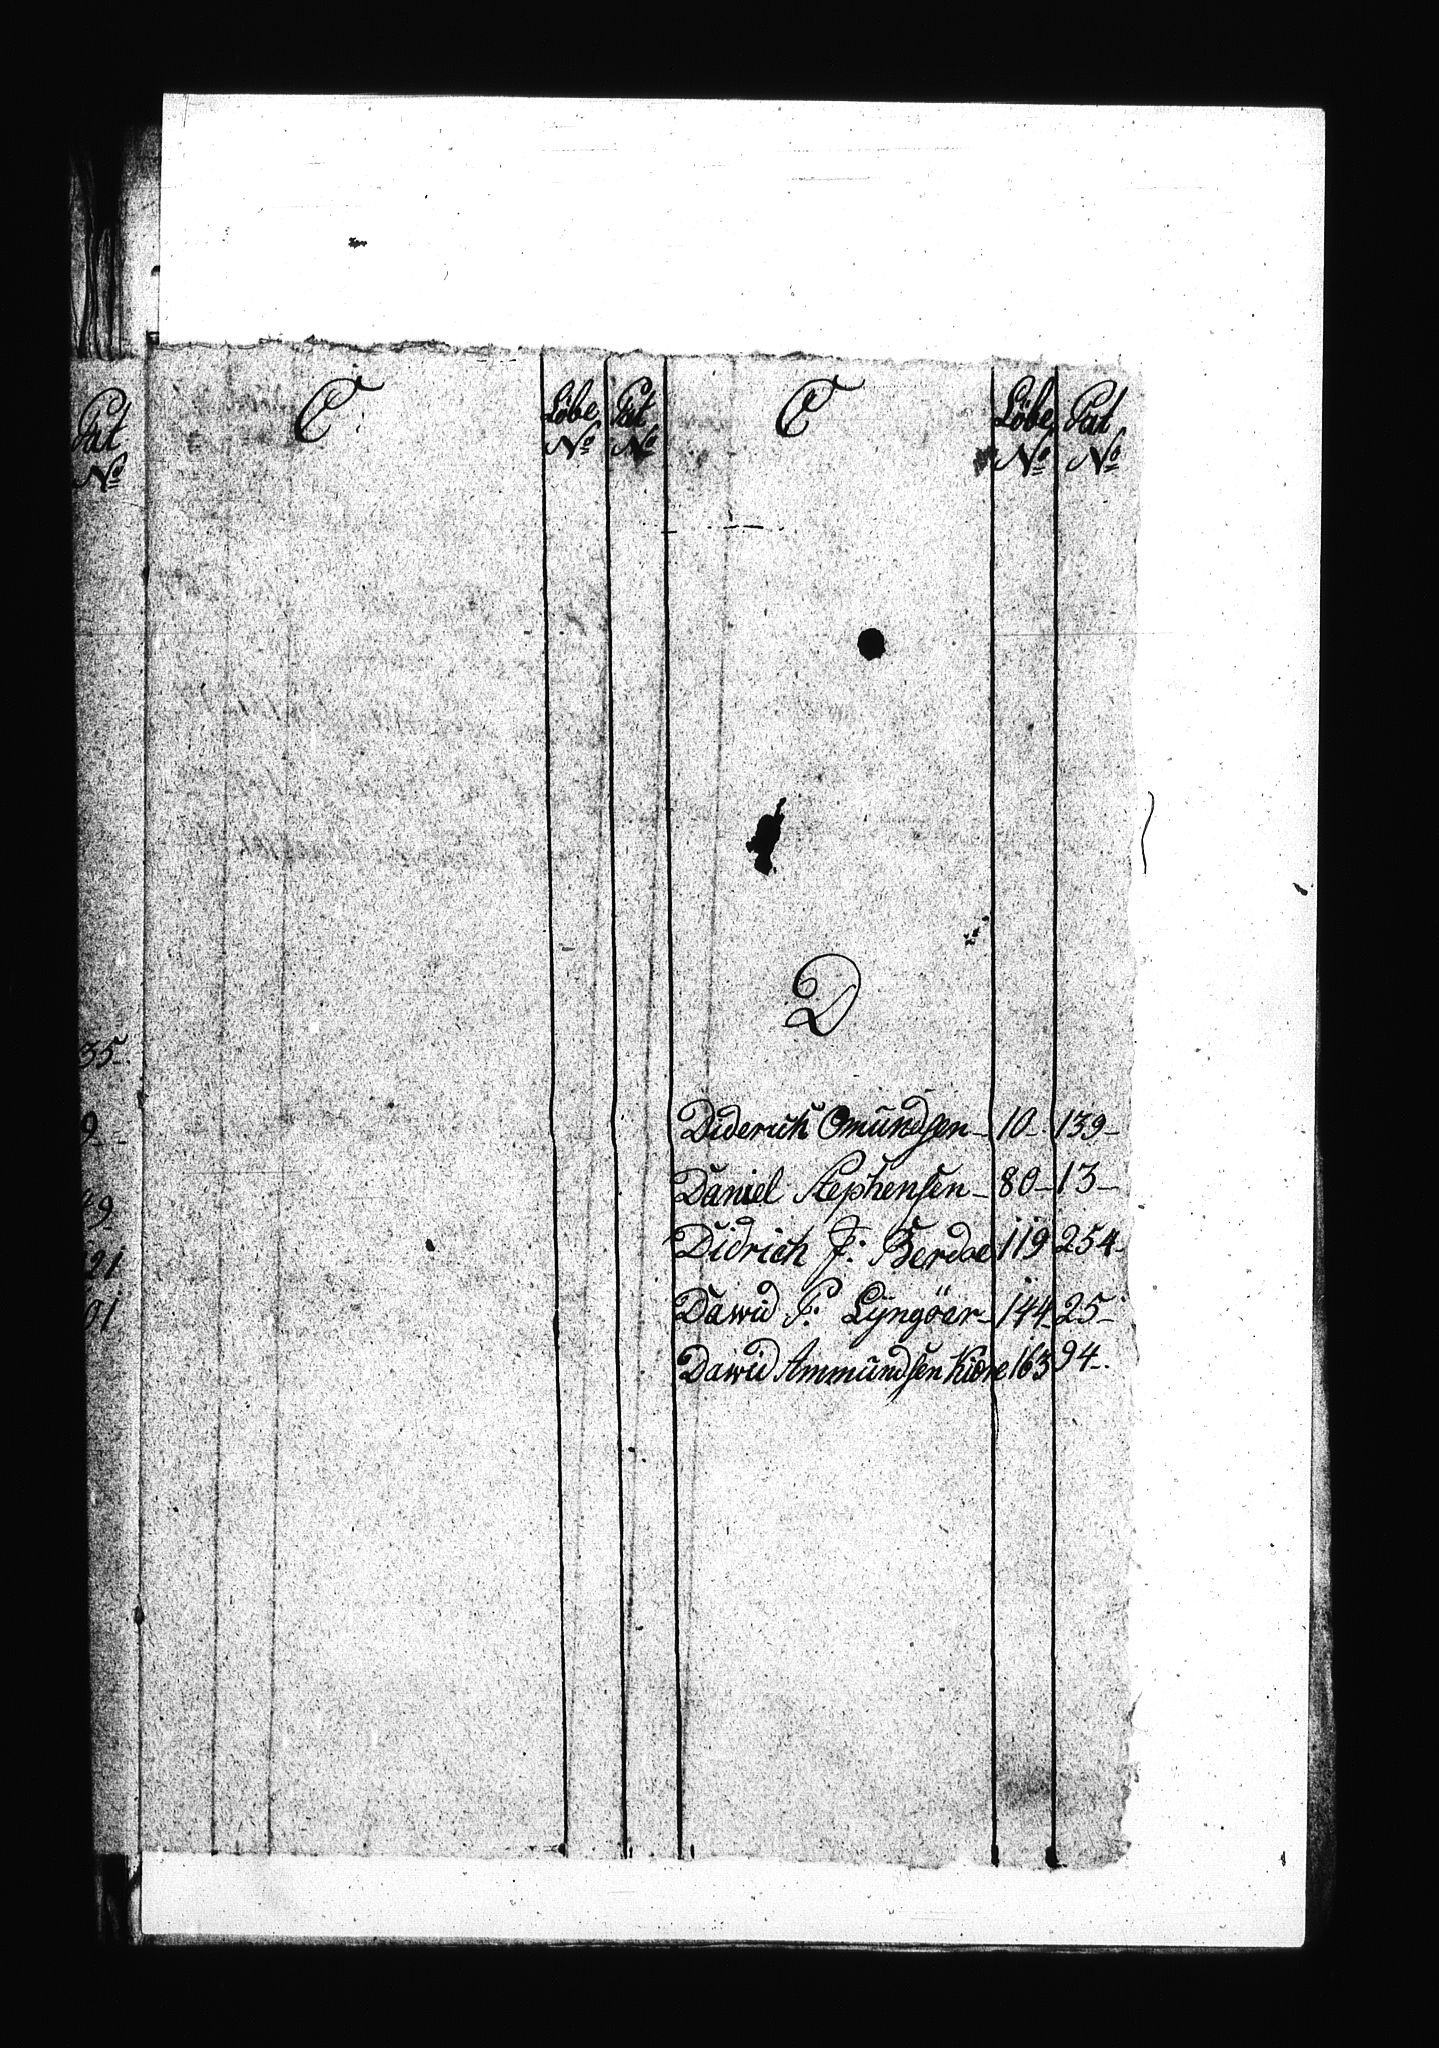 Pat
No
35-
9-
49
21
01
C:
Löbe
No
Pat
No
C
Löbe
No
Pat
No
D
Diderich Omundsen- 10- 139-
Daniel Stephensen- 80- 13-
Didrich J: Berdal 119 254-
Dawid P: Lyngöer- 144 25-
Dawid Ammundsen 163 94-.